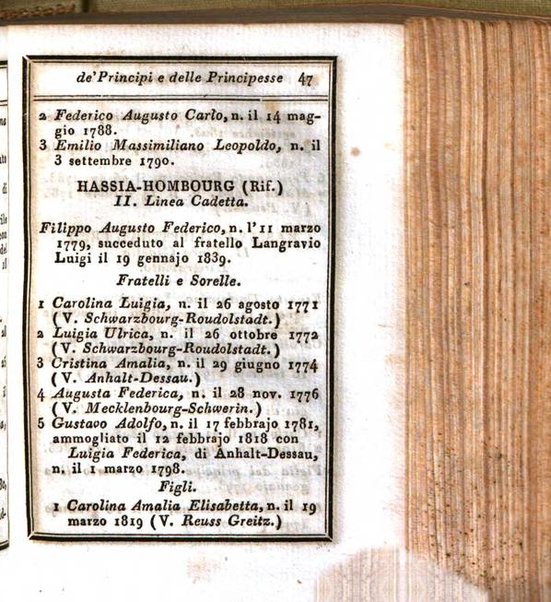 de'Principi e delle Principesse 47
2 Federico Augusto Carlo, n. il 14 mag-
gio 1788.
3 Emilio Massimiliano Leopoldo, n. il
3 settembre 1790.
HASSIA-HOMBOURG (Rif.)
II. Linea Cadetta.
Filippo Augusto Federico, n. l'11 marzo
1779, succeduto al fratello Langravio
Luigi il 19 gennajo 1839.
Fratelli e Sorelle.
1 Carolina Luigia, n. il 26 agosto 1771
(V. Schwarzbourg-Roudolstadt.)
2 Luigia Ulrica, n. il 26 ottobre 1772
(V. Schwarzbourg-Roudolstadt.)
3 Cristina Amalia, n. il 29 giugno 1774
(V. Anhalt-Dessau.)
4 Augusta Federica, n. il 28 nov. 1776
(V. Mecklenbourg-Schwerin.)
5 Gustavo Adolfo, n. il 17 febbrajo 1781,
ammogliato il 12 febbrajo 1818 con
Luigia Federica, di Anhalt-Dessau,
n. il 1 marzo 1798.
Figli.
1 Carolina Amalia Elisabetta, n. il 19
marzo 1819 (V. Reuss Greitz.)